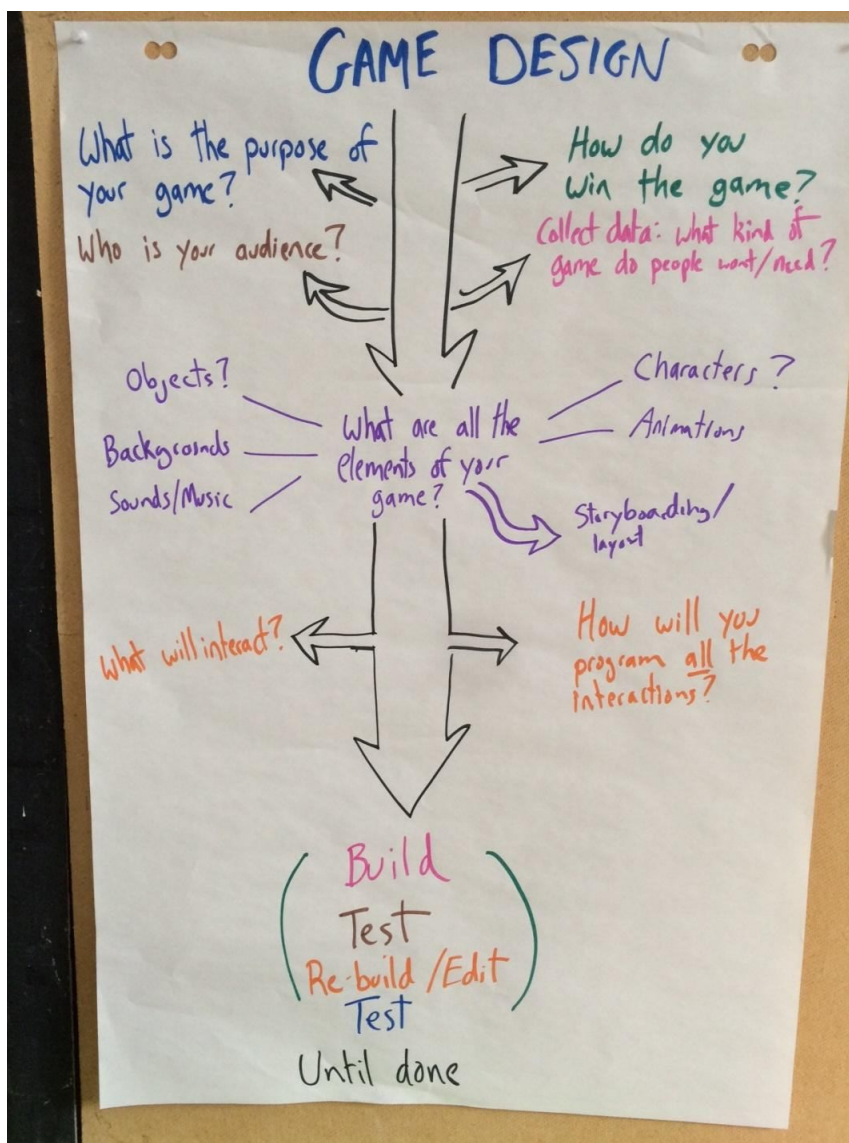 GAME DESIGN
What is the purpose of
your game?
Who is your audience?
How do you
win the game?
Collect data: what kind of
game do people want/need?
Objects?
Backgrounds
Sounds/Music
What are all the
elements of your
game?
Characters?
Animations
Storyboarding/
layout
What will interact?
How will you
program all the
interactions?
Build
Test
Re-build/Edit
Test
Until done